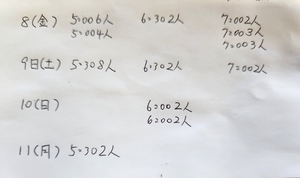 8(金) 5:006人 6:302人 7:002人
5:004人 7:003人
7:003人
9日(土) 5:308人 6:302人 7:002人
10(日) 6:002人
6:002人
11(月) 5:302人